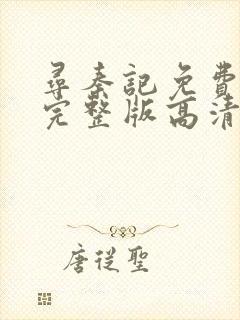 尋秦記免費
完整版高清
唐從聖